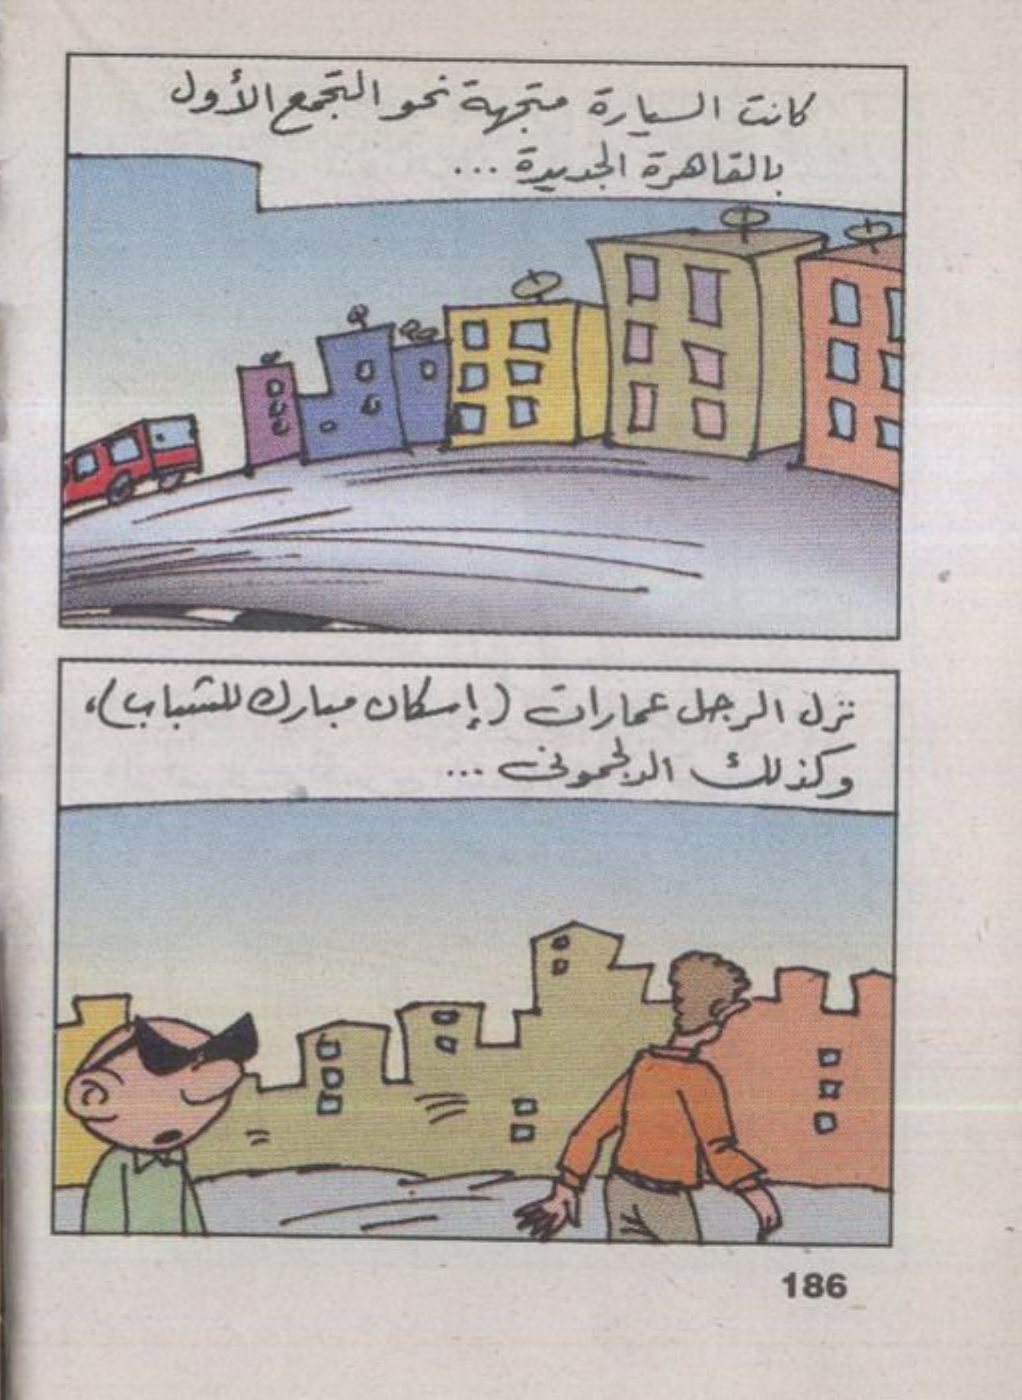 كانت السيارة متجهة نحو التجمع الأول
بالقاهرة الجديدة ...
نزل الرجل عمارات (إسكان مبارك للشباب)،
وكذلك الدلجموني ...
186